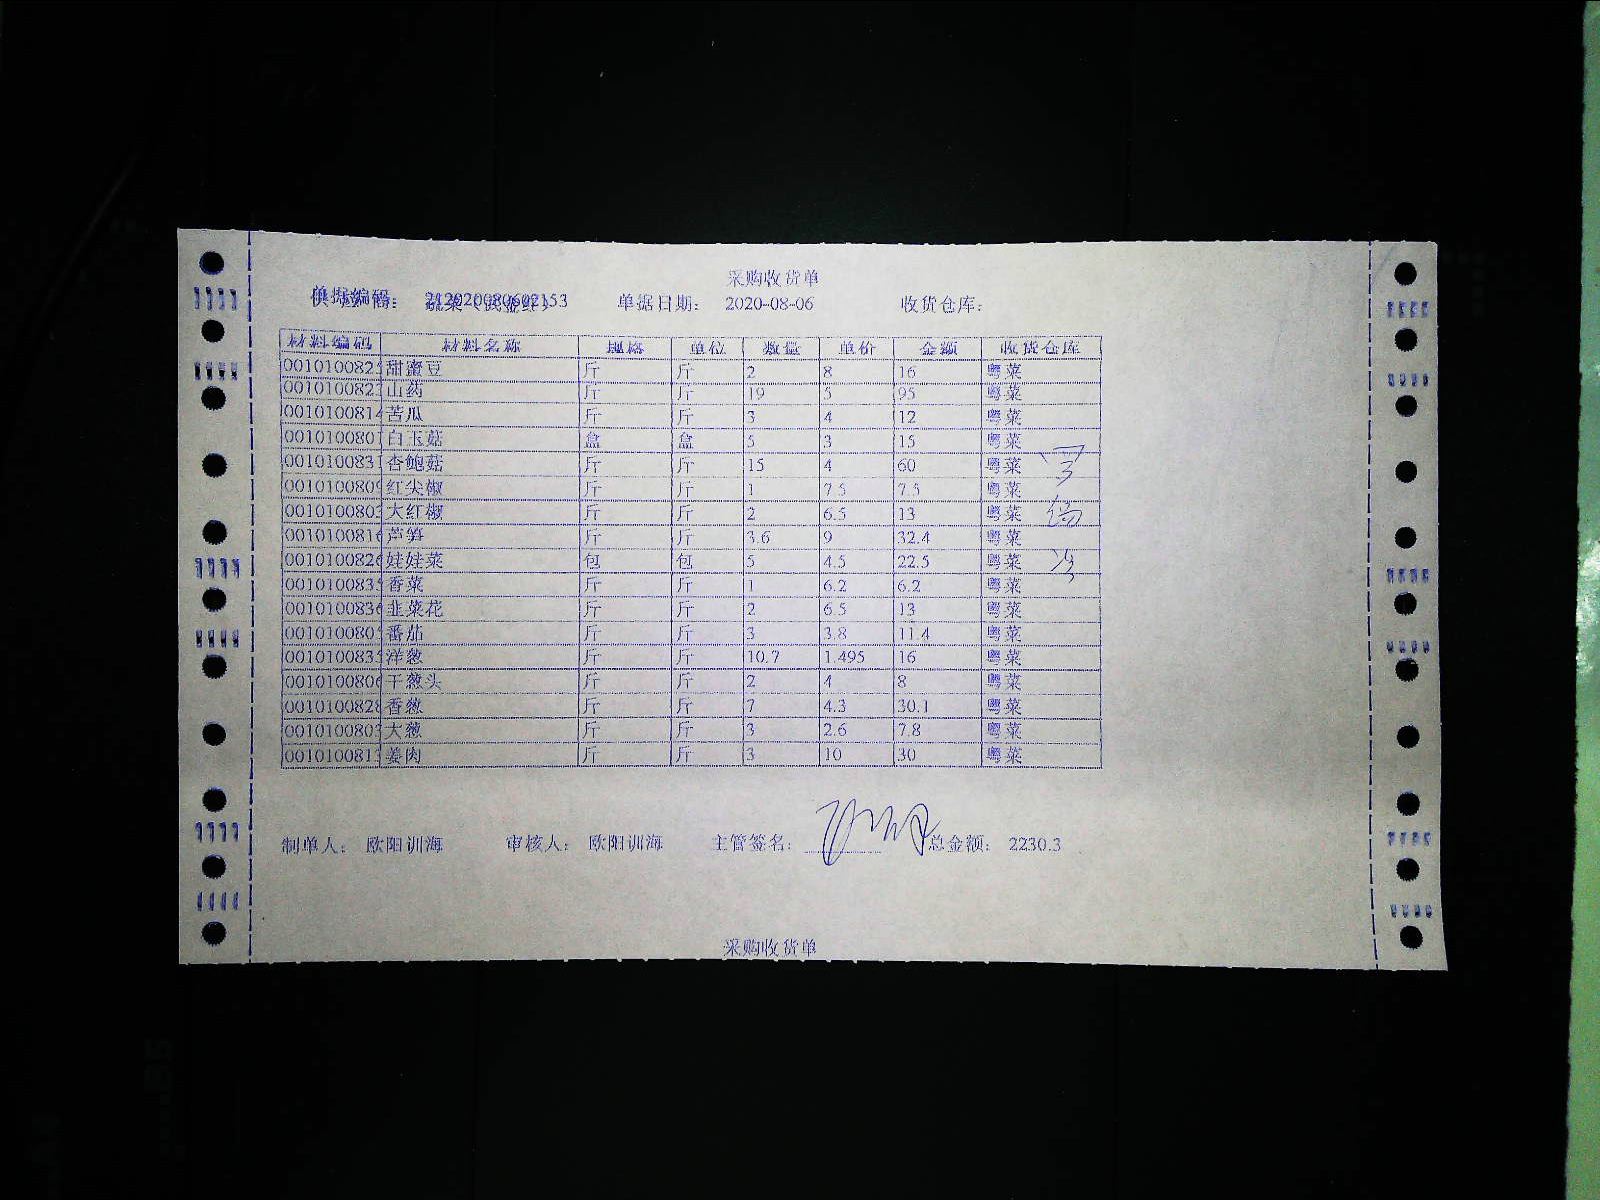 采购收货单
单据日期： 2020-08-06 收货仓库：
材料编码 材料名称 规格 单位 数量 单价 金额 收货仓库
001010082 甜蜜豆 斤 斤 2 8 16 粤菜
001010082 山药 斤 斤 19 5 95 粤菜
0010100814 苦瓜 斤 斤 3 4 12 粤菜
001010080 白玉菇 盒 盒 5 3 15 粤菜
001010083 杏鲍菇 斤 斤 15 4 60 粤菜
0010100809 红尖椒 斤 斤 1 7.5 7.5 粤菜
001010080 大红椒 斤 斤 2 6.5 13 粤菜
0010100816 芦笋 斤 斤 3.6 9 32.4 粤菜
0010100826 娃娃菜 包 包 5 4.5 22.5 粤菜
001010083 香菜 斤 斤 1 6.2 6.2 粤菜
0010100836 韭菜花 斤 斤 2 6.5 13 粤菜
001010080 番茄 斤 斤 3 3.8 11.4 粤菜
001010083 洋葱 斤 斤 10.7 1.495 16 粤菜
0010100806 干葱头 斤 斤 2 4 8 粤菜
0010100828 香葱 斤 斤 7 4.3 30.1 粤菜
001010080 大葱 斤 斤 3 2.6 7.8 粤菜
001010081 姜肉 斤 斤 3 10 30 粤菜
制单人： 欧阳训海 审核人： 欧阳训海 主管签名： 总金额： 2230.3
采购收货单